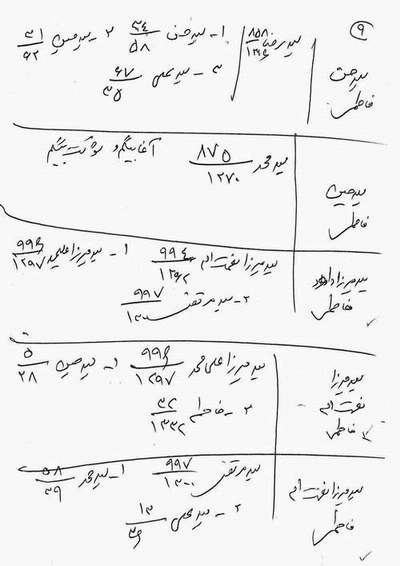 ۹
سید حجت فاطمی
سید رضا ۸۵۸/۱۲۶۵ ۱- سید حسن ۳۴/۵۸ ۲- سید حسین ۳۱/۶۲
۳- سید علی ۶۷/۳۵
سید حسین فاطمی
سید محمد ۸۷۵/۱۲۷۰ آغا بیگم و شوکت بیگم
سید میرزا داود فاطمی
سید میرزا نعمت اله ۹۹۴/۱۲۶۲ ۱- سید میرزا علیمحمد ۹۹۶/۱۲۹۷
۲- سید مرتضی ۹۹۷/۱۳۰۰
سید میرزا
نعمت اله
فاطمی
سید میرزا علی محمد ۹۹۶/۱۲۹۷ ۱- سید حسین ۵/۲۸
۲- فاطمه ۳۲/۱۳۳۲
سید میرزا نعمت اله
فاطمی
سید مرتضی ۹۹۷/۱۳۰۰ ۱- سید محمد ۵۸/۳۹
۲- سید علی ۱۳/۳۶